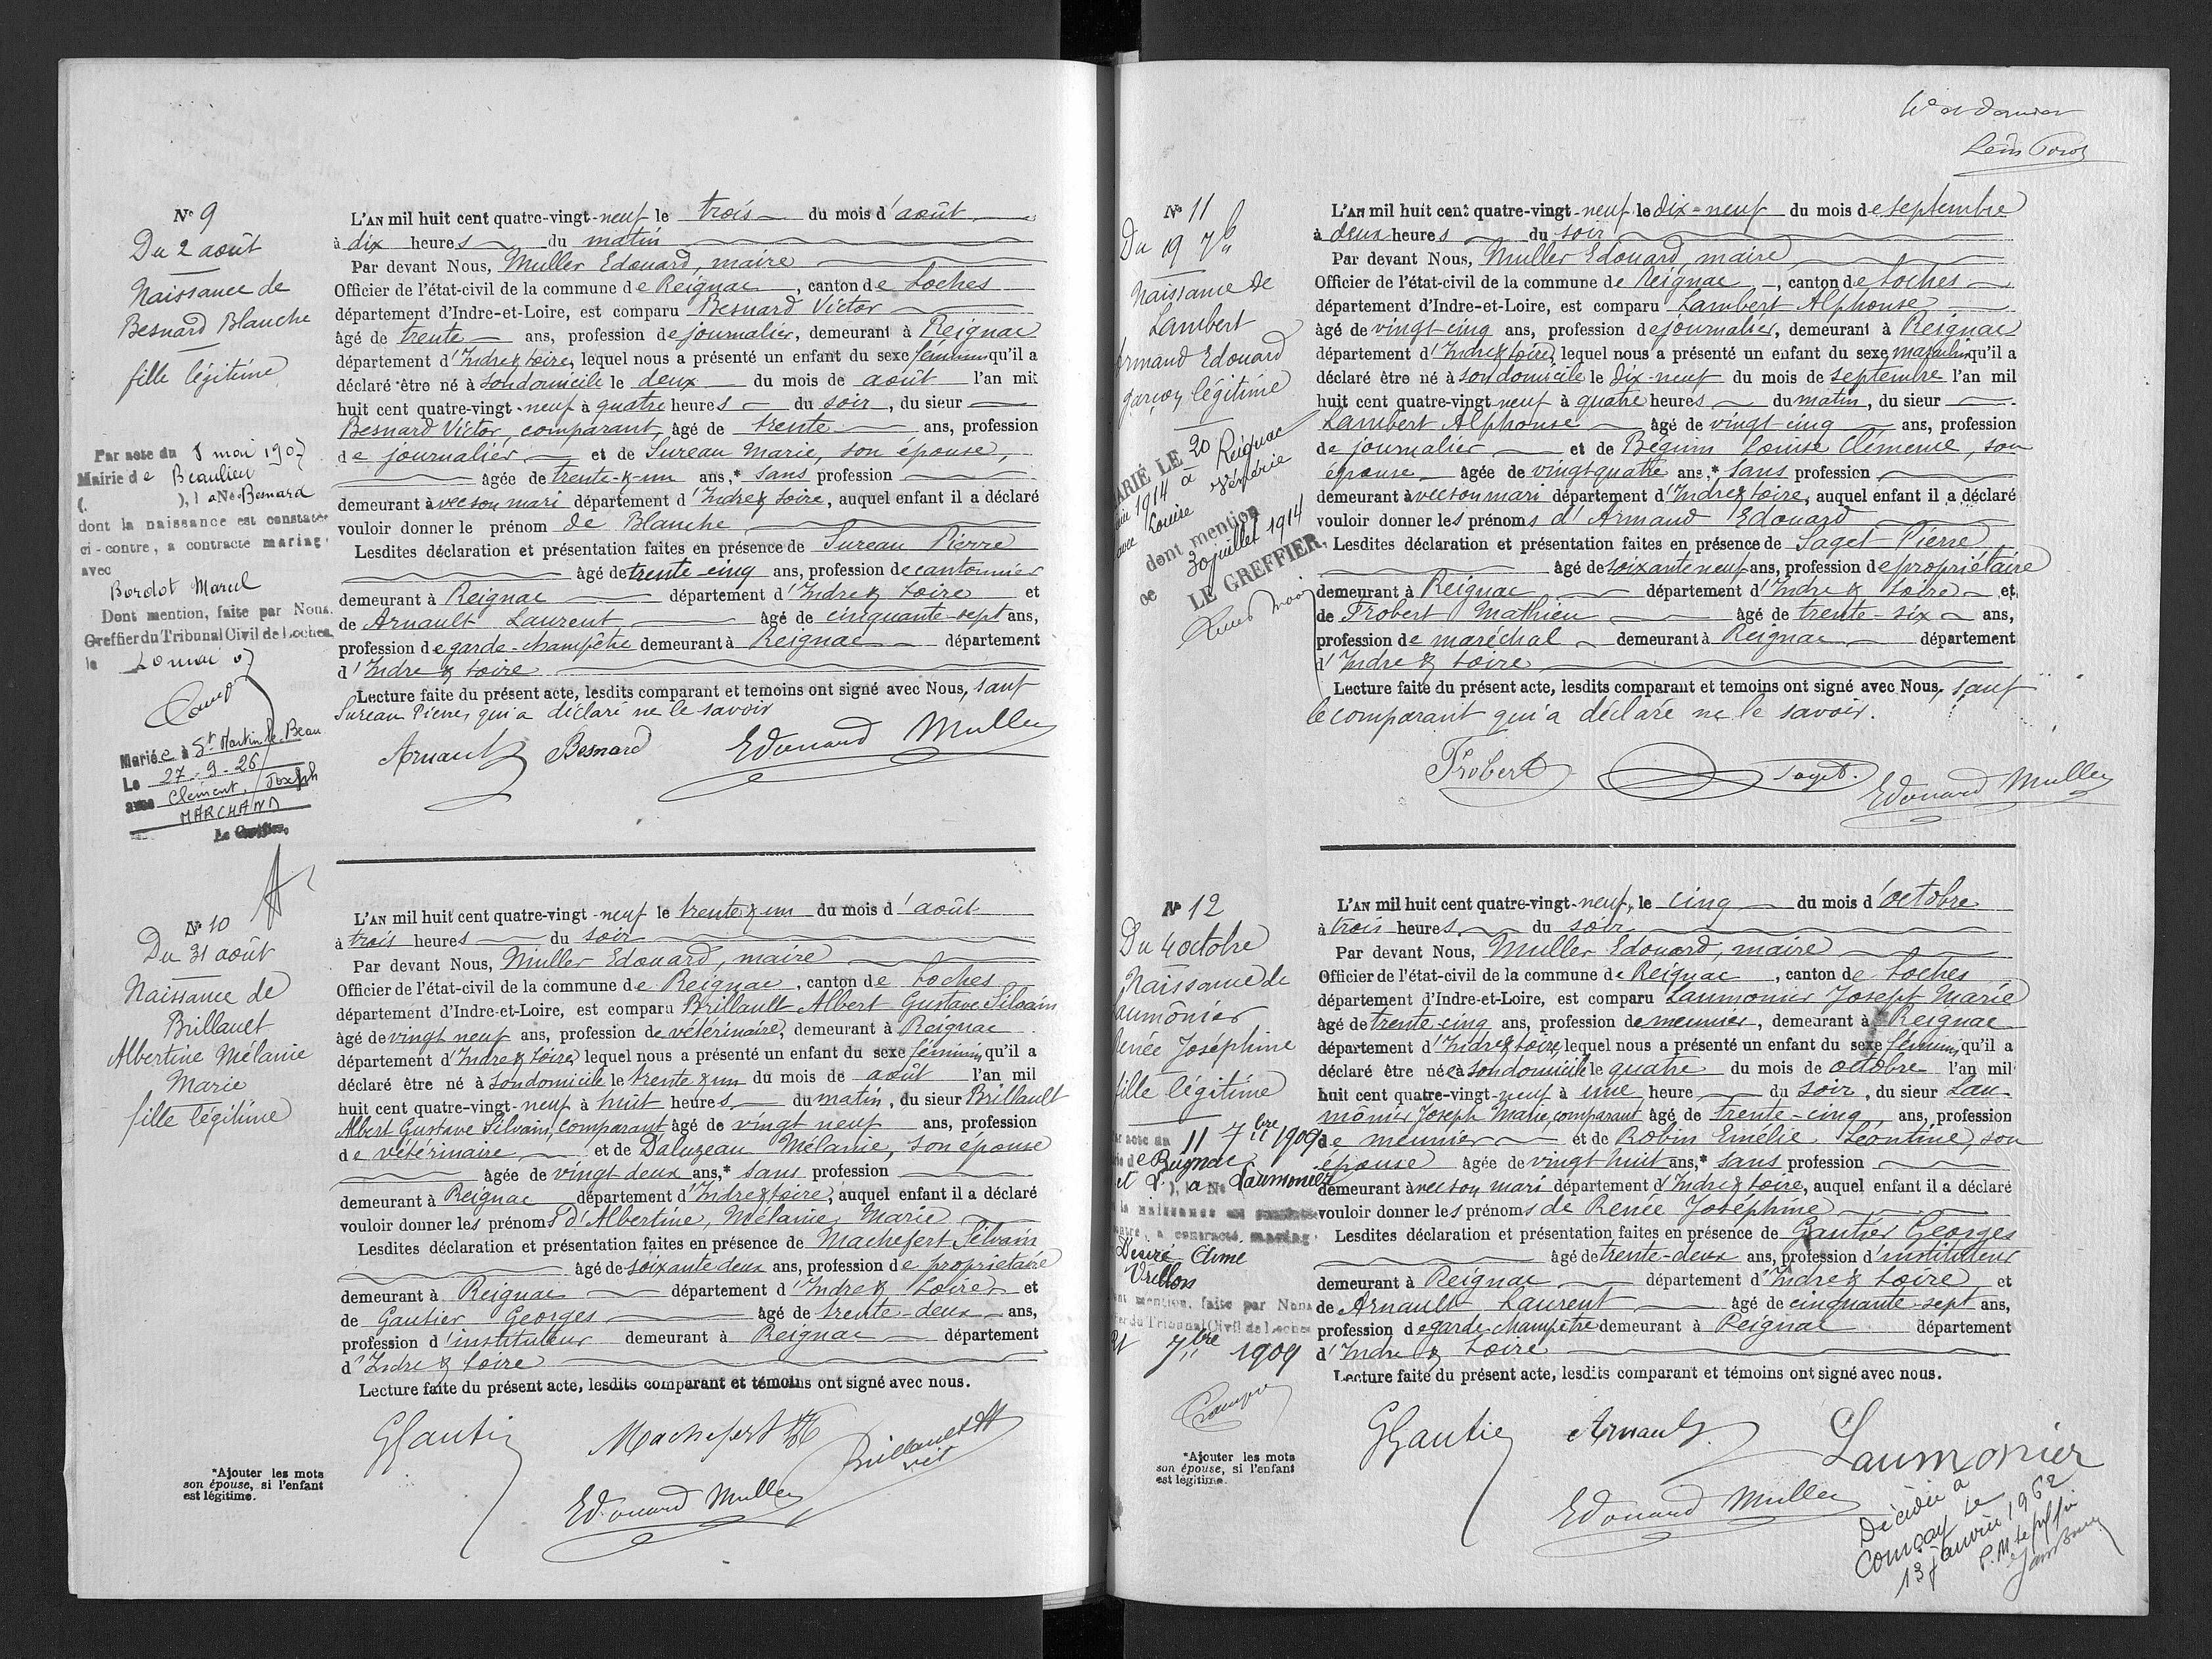 Nº 9
Du 2 août
Naissance de
Besnard Blanche
fille légitime
Par acte du 8 mai 1907
Mairie de Beaulieu
( ), la Née Besnard
dont la naissance est constatée
ci-contre, a contracté mariage
avec
Bordot Marcel
Dont mention, faite par Nous.
Greffier du Tribunal Civil de Loches,
le 20 mai 07
Mariée à St Martin le Beau
Le 27-9-26
avec Clément, Joseph
MARCHAND
Le Greffier,
L'AN mil huit cent quatre-vingt-neuf le trois du mois d'août
à dix heures du matin
Par devant Nous, Muller Edouard, maire
Officier de l'état-civil de la commune de Reignac, canton de Loches
département d'Indre-et-Loire, est comparu Besnard Victor
âgé de trente ans, profession de journalier, demeurant à Reignac
département d'Indre & Loire, lequel nous a présenté un enfant du sexe féminin qu'il a
déclaré être né à son domicile le deux du mois de août l'an mil
huit cent quatre-vingt-neuf à quatre heures du soir, du sieur
Besnard Victor, comparant, âgé de trente ans, profession
de journalier et de Sureau Marie, son épouse,
âgée de trente-&-un ans,* sans profession
demeurant avec son mari département d'Indre & Loire, auquel enfant il a déclaré
vouloir donner le prénom de Blanche
Lesdites déclaration et présentation faites en présence de Sureau Pierre
âgé de trente cinq ans, profession de cantonnier
demeurant à Reignac département d'Indre & Loire et
de Arnault Laurent âgé de cinquante-sept ans,
profession de garde-champêtre demeurant à Reignac département
d'Indre & Loire
Lecture faite du présent acte, lesdits comparant et temoins ont signé avec Nous, sauf
Sureau Pierre, qui a déclaré ne le savoir
Arnault Besnard Edouard Muller
Nº 10
Du 31 août
Naissance de
Brillault
Albertine Mélanie
Marie
fille légitime
L'AN mil huit cent quatre-vingt-neuf le trente & un du mois d'août
à trois heures du soir
Par devant Nous, Muller Edouard, maire
Officier de l'état-civil de la commune de Reignac, canton de Loches
département d'Indre-et-Loire, est comparu Brillault Albert Gustave Silvain
âgé de vingt neuf ans, profession de vétérinaire, demeurant à Reignac
département d'Indre & Loire, lequel nous a présenté un enfant du sexe féminin qu'il a
déclaré être né à son domicile le trente & un du mois de août l'an mil
huit cent quatre-vingt-neuf à huit heures du matin, du sieur Brillault
Albert Gustave Silvain, comparant âgé de vingt neuf ans, profession
de vétérinaire et de Daluzeau Mélanie, son épouse
âgée de vingt deux ans,* sans profession
demeurant à Reignac département d'Indre & Loire, auquel enfant il a déclaré
vouloir donner les prénoms d'Albertine, Mélanie, Marie
Lesdites déclaration et présentation faites en présence de Machefert Silvain
âgé de soixante deux ans, profession de propriétaire
demeurant à Reignac département d'Indre & Loire et
de Gautier Georges âgé de trente-deux ans,
profession d'instituteur demeurant à Reignac département
d'Indre & Loire
Lecture faite du présent acte, lesdits comparant et témoins ont signé avec nous.
GGautier Machefert Brillault A
vét
Edouard Muller
*Ajouter les mots
son épouse, si l'enfant
est légitime.
Nº 11
Du 19 7b
Naissance de
Lambert
Armand Edouard
garçon légitime
MARIÉ LE 20
1914 à Reignac
avec Louise Vénérie
dont mention
ce 30 juillet 1914
LE GREFFIER,
L'AN mil huit cent quatre-vingt-neuf le dix-neuf du mois de septembre
à deux heures du soir
Par devant Nous, Muller Edouard, maire
Officier de l'état-civil de la commune de Reignac, canton de Loches
département d'Indre-et-Loire, est comparu Lambert Alphonse
âgé de vingt-cinq ans, profession de journalier, demeurant à Reignac
département d'Indre & Loire, lequel nous a présenté un enfant du sexe masculin qu'il a
déclaré être né à son domicile le dix-neuf du mois de septembre l'an mil
huit cent quatre-vingt-neuf à quatre heures du matin, du sieur
Lambert Alphonse âgé de vingt cinq ans, profession
de journalier et de Béguin Louise Clémence, son
épouse âgée de vingt-quatre ans,* sans profession
demeurant avec son mari département d'Indre & Loire, auquel enfant il a déclaré
vouloir donner les prénoms d'Armand Edouard
Lesdites déclaration et présentation faites en présence de Saget Pierre
âgé de soixante neuf ans, profession de propriétaire
demeurant à Reignac département d'Indre & Loire et
de Frobert Mathieu âgé de trente-six ans,
profession de maréchal demeurant à Reignac département
d'Indre & Loire
Lecture faite du présent acte, lesdits comparant et temoins ont signé avec Nous, sauf
le comparant qui a déclaré ne le savoir.
Frobert Saget. Edouard Muller
Nº 12
Du 4 octobre
Naissance de
Laumônier
Renée Joséphine
fille légitime
acte du 11 7bre 1909
de Reignac
), la Née Laumonier
la naissance est constatée
contre, a contracté mariage
Désiré Aimé
Vrillon
mention, faite par Nous
du Tribunal Civil de Loches
7bre 1909
*Ajouter les mots
son épouse, si l'enfant
est légitime.
L'AN mil huit cent quatre-vingt-neuf, le cinq du mois d'octobre
à trois heures du soir
Par devant Nous, Muller Edouard, maire
Officier de l'état-civil de la commune de Reignac, canton de Loches
département d'Indre-et-Loire, est comparu Laumonier Joseph Marie
âgé de trente-cinq ans, profession de meunier, demeurant à Reignac
département d'Indre & Loire, lequel nous a présenté un enfant du sexe féminin qu'il a
déclaré être née à son domicile le quatre du mois de octobre l'an mil
huit cent quatre-vingt-neuf à une heure du soir, du sieur Lau-
mônier Joseph Marie, comparant âgé de trente-cinq ans, profession
de meunier et de Robin Emélie Léontine, son
épouse âgée de vingt huit ans,* sans profession
demeurant avec son mari département d'Indre & Loire, auquel enfant il a déclaré
vouloir donner les prénoms de Renée Joséphine
Lesdites déclaration et présentation faites en présence de Gautier Georges
âgé de trente-deux ans, profession d'instituteur
demeurant à Reignac département d'Indre & Loire et
de Arnault Laurent âgé de cinquante-sept ans,
profession de garde champêtre demeurant à Reignac département
d'Indre & Loire
Lecture faite du présent acte, lesdits comparant et témoins ont signé avec nous.
GGautier Arnault Laumonier
Edouard Muller
Décédée à
Courçay le
13 janvier 1962